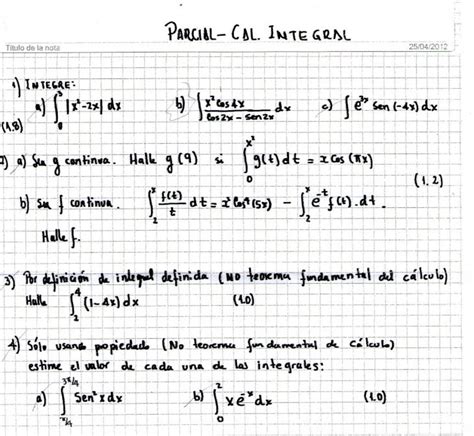 PARCIAL - CAL. INTEGRAL
Título de la nota 25/04/2012
1) INTEGRE:
a) ∫₀³ |x²-2x| dx b) ∫ x² cos 4x / (cos 2x - sen 2x) dx c) ∫ e^{3x} sen(-4x) dx
(1.8)
2) a) Sea g continua. Halle g(9) si ∫₀^{x²} g(t) dt = x cos(πx)
(1.2)
b) Sea f continua. ∫₂ˣ f(t)/t dt = x² (5x) - ∫₂ˣ e^{-t} f(t). dt.
Halle f.
3) Por definición de integral definida (NO teorema fundamental del cálculo)
Halle ∫₂⁴ (1-4x) dx (1.0)
4) Sólo usando propiedades (No teorema fundamental de cálculo)
estime el valor de cada una de las integrales:
a) ∫_{-π/4}^{3π/4} Sen² x dx b) ∫₀² x e^{-x} dx (1.0)